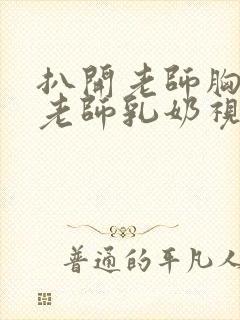 扒開老師胸
老師乳奶視
普通的平凡人